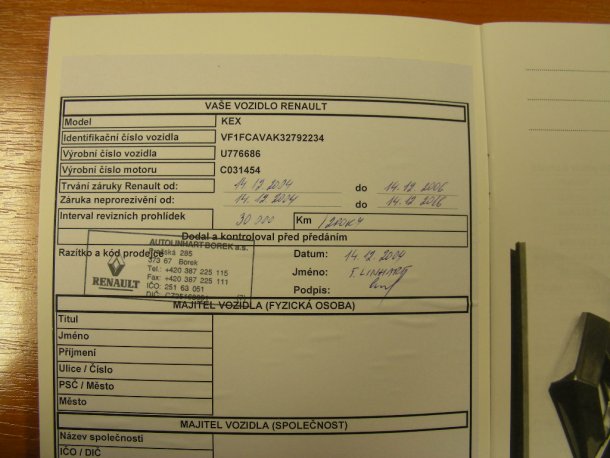 VAŠE VOZIDLO RENAULT
Model KEX
Identifikační číslo vozidla VF1FCAVAK32792234
Výrobní číslo vozidla U776686
Výrobní číslo motoru C031454
Trvání záruky Renault od: 14.12.2004 do 14.12.2006
Záruka neprorezivění od: 14.12.2004 do 14.12.2016
Interval revizních prohlídek 30 000 Km /2ROKY
Dodal a kontroloval před předáním
Razítko a kód prodejce
AUTOLINHART BOREK a.s.
Pražská 285
373 67 Borek
Tel.: +420 387 225 115
Fax: +420 387 225 111
IČO: 251 63 051
DIČ:
RENAULT
Datum: 14.12.2004
Jméno: F. LINHART
Podpis:
MAJITEL VOZIDLA (FYZICKÁ OSOBA)
Titul
Jméno
Příjmení
Ulice / Číslo
PSČ / Město
Město
MAJITEL VOZIDLA (SPOLEČNOST)
Název společnosti
IČO / DIČ